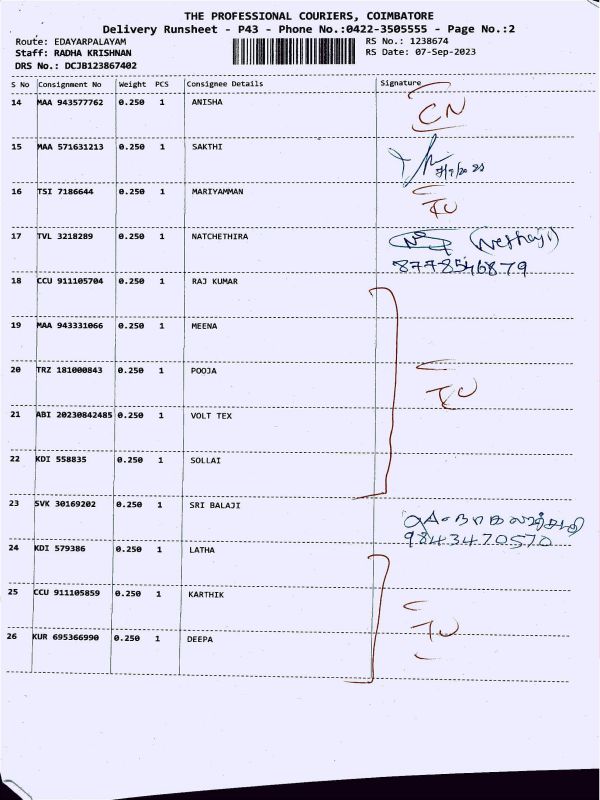 THE PROFESSIONAL COURIERS, COIMBATORE
Delivery Runsheet - P43 - Phone No.:0422-3505555 - Page No.:2
Route: EDAYARPALAYAM RS No.: 1238674
Staff: RADHA KRISHNAN RS Date: 07-Sep-2023
DRS No.: DCJB123867402
S No Consignment No Weight PCS Consignee Details Signature
14 MAA 943577762 0.250 1 ANISHA CN
15 MAA 571631213 0.250 1 SAKTHI
16 TSI 7186644 0.250 1 MARIYAMMAN
17 TVL 3218289 0.250 1 NATCHETHIRA (Nethaji)
8778546879
18 CCU 911105704 0.250 1 RAJ KUMAR
19 MAA 943331066 0.250 1 MEENA
20 TRZ 181000843 0.250 1 POOJA
21 ABI 20230842485 0.250 1 VOLT TEX
22 KDI 558835 0.250 1 SOLLAI
23 SVK 30169202 0.250 1 SRI BALAJI
9843470570
24 KDI 579386 0.250 1 LATHA
25 CCU 911105859 0.250 1 KARTHIK
26 KUR 695366990 0.250 1 DEEPA